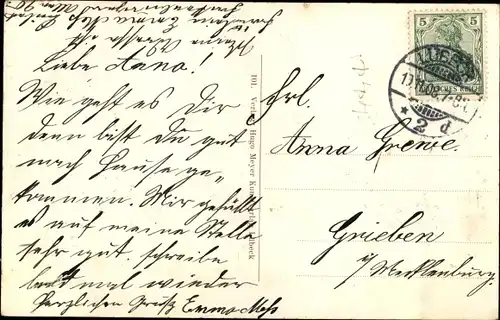 Liebe Anna!
Wie geht es Dir
denn bist Du gut
nach Hause ge-
kommen. Mir gefällt
es auf meine Stelle
sehr gut. schreibe
bald mal wieder
Herzlichen Gruß Emma
101. Verlag Hugo Meyer Lübeck
5 5
LÜBECK
* 2 d
Frl.
Anna Grewe.
Grieben
i/ Mecklenburg.